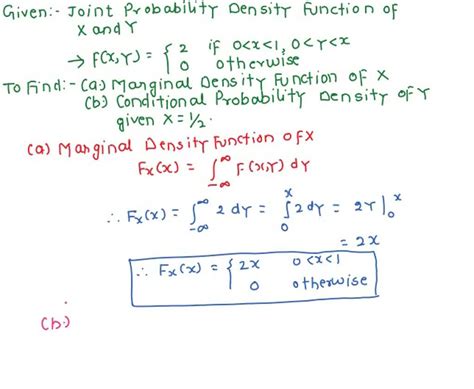 Given:- Joint Probability Density Function of
X and Y
→ F(X,Y) = { 2 if 0<x<1, 0<Y<x
0 otherwise
To Find:- (a) Marginal Density Function of X
(b) Conditional Probability Density of Y
given X = 1/2.
(a) Marginal Density Function of X
Fx(x) = ∫_{-∞}^{∞} F(x,Y) dY
∴ Fx(x) = ∫_{-∞}^{∞} 2 dY = ∫_{0}^{x} 2 dY = 2Y|_{0}^{x}
= 2x
∴ Fx(x) = { 2x 0<x<1
0 otherwise
(b.)